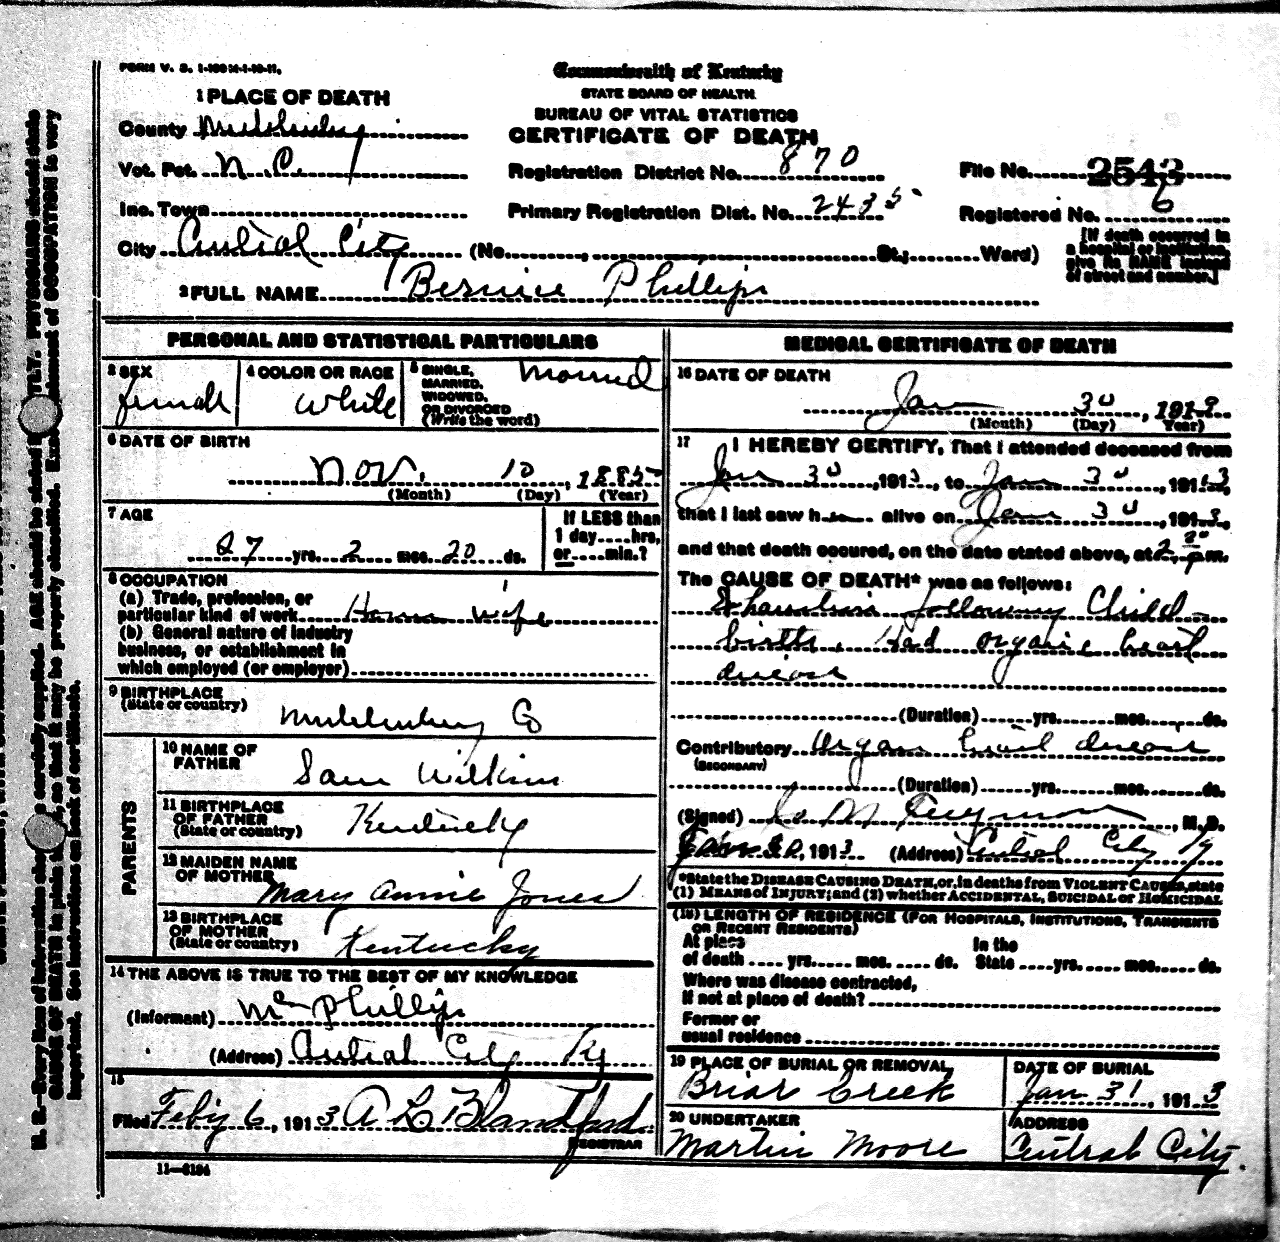 FORM V. S. 1-100M-1-10-11.
Commonwealth of Kentucky
STATE BOARD OF HEALTH
BUREAU OF VITAL STATISTICS
CERTIFICATE OF DEATH
1 PLACE OF DEATH
County Muhlenberg
Vot. Pct. N.C.
Inc. Town
City Central City (No. , St.; Ward)
Registration District No. 870
Primary Registration Dist. No. 2435
File No. 2543
Registered No. 6
[If death occurred in
a hospital or institution,
give its NAME instead
of street and number.]
2 FULL NAME Bernice Phillips
PERSONAL AND STATISTICAL PARTICULARS
3 SEX female
4 COLOR OR RACE White
5 SINGLE, MARRIED, WIDOWED, OR DIVORCED (Write the word) Married
6 DATE OF BIRTH
Nov. 10, 1885
(Month) (Day) (Year)
7 AGE
27 yrs. 2 mos. 20 ds.
If LESS than
1 day....hrs,
or....min.?
8 OCCUPATION
(a) Trade, profession, or
particular kind of work House wife
(b) General nature of industry
business, or establishment in
which employed (or employer)
9 BIRTHPLACE
(State or country) Muhlenberg Co
PARENTS
10 NAME OF
FATHER Sam Wilkins
11 BIRTHPLACE
OF FATHER
(State or country) Kentucky
12 MAIDEN NAME
OF MOTHER Mary Annie Jones
13 BIRTHPLACE
OF MOTHER
(State or country) Kentucky
14 THE ABOVE IS TRUE TO THE BEST OF MY KNOWLEDGE
(Informant) Mc Phillips
(Address) Central City Ky
15
Filed Feby 6, 1913 A L Blandford
REGISTRAR
11—6184
MEDICAL CERTIFICATE OF DEATH
16 DATE OF DEATH
Jan 30, 191
(Month) (Day) (Year)
17 I HEREBY CERTIFY, That I attended deceased from
Jan 30, 1913, to Jan 30, 1913,
that I last saw h alive on Jan 30, 1913,
and that death occured, on the date stated above, at 2 30 pm.
The CAUSE OF DEATH* was as follows:
following Child
birth. Had organic heart
disease
(Duration) yrs. mos. ds.
Contributory Organic heart disease
(SECONDARY)
(Duration) yrs. mos. ds.
(Signed) , M.D.
Jan 30, 1913 (Address) Central City Ky
*State the DISEASE CAUSING DEATH, or, in deaths from VIOLENT CAUSES, state
(1) MEANS OF INJURY; and (2) whether ACCIDENTAL, SUICIDAL or HOMICIDAL
(18) LENGTH OF RESIDENCE (FOR HOSPITALS, INSTITUTIONS, TRANSIENTS
OR RECENT RESIDENTS)
At place In the
of death yrs. mos. ds. State yrs. mos. ds.
Where was disease contracted,
if not at place of death?
Former or
usual residence
19 PLACE OF BURIAL OR REMOVAL
Briar Creek
DATE OF BURIAL
Jan 31, 1913
20 UNDERTAKER
Martin Moore
ADDRESS
Central City.
N. B.—Every item of information should be carefully supplied. AGE should be stated EXACTLY. PHYSICIANS should state
CAUSE OF DEATH in plain terms, so that it may be properly classified. Exact statement of OCCUPATION is very
important. See instructions on back of certificate.